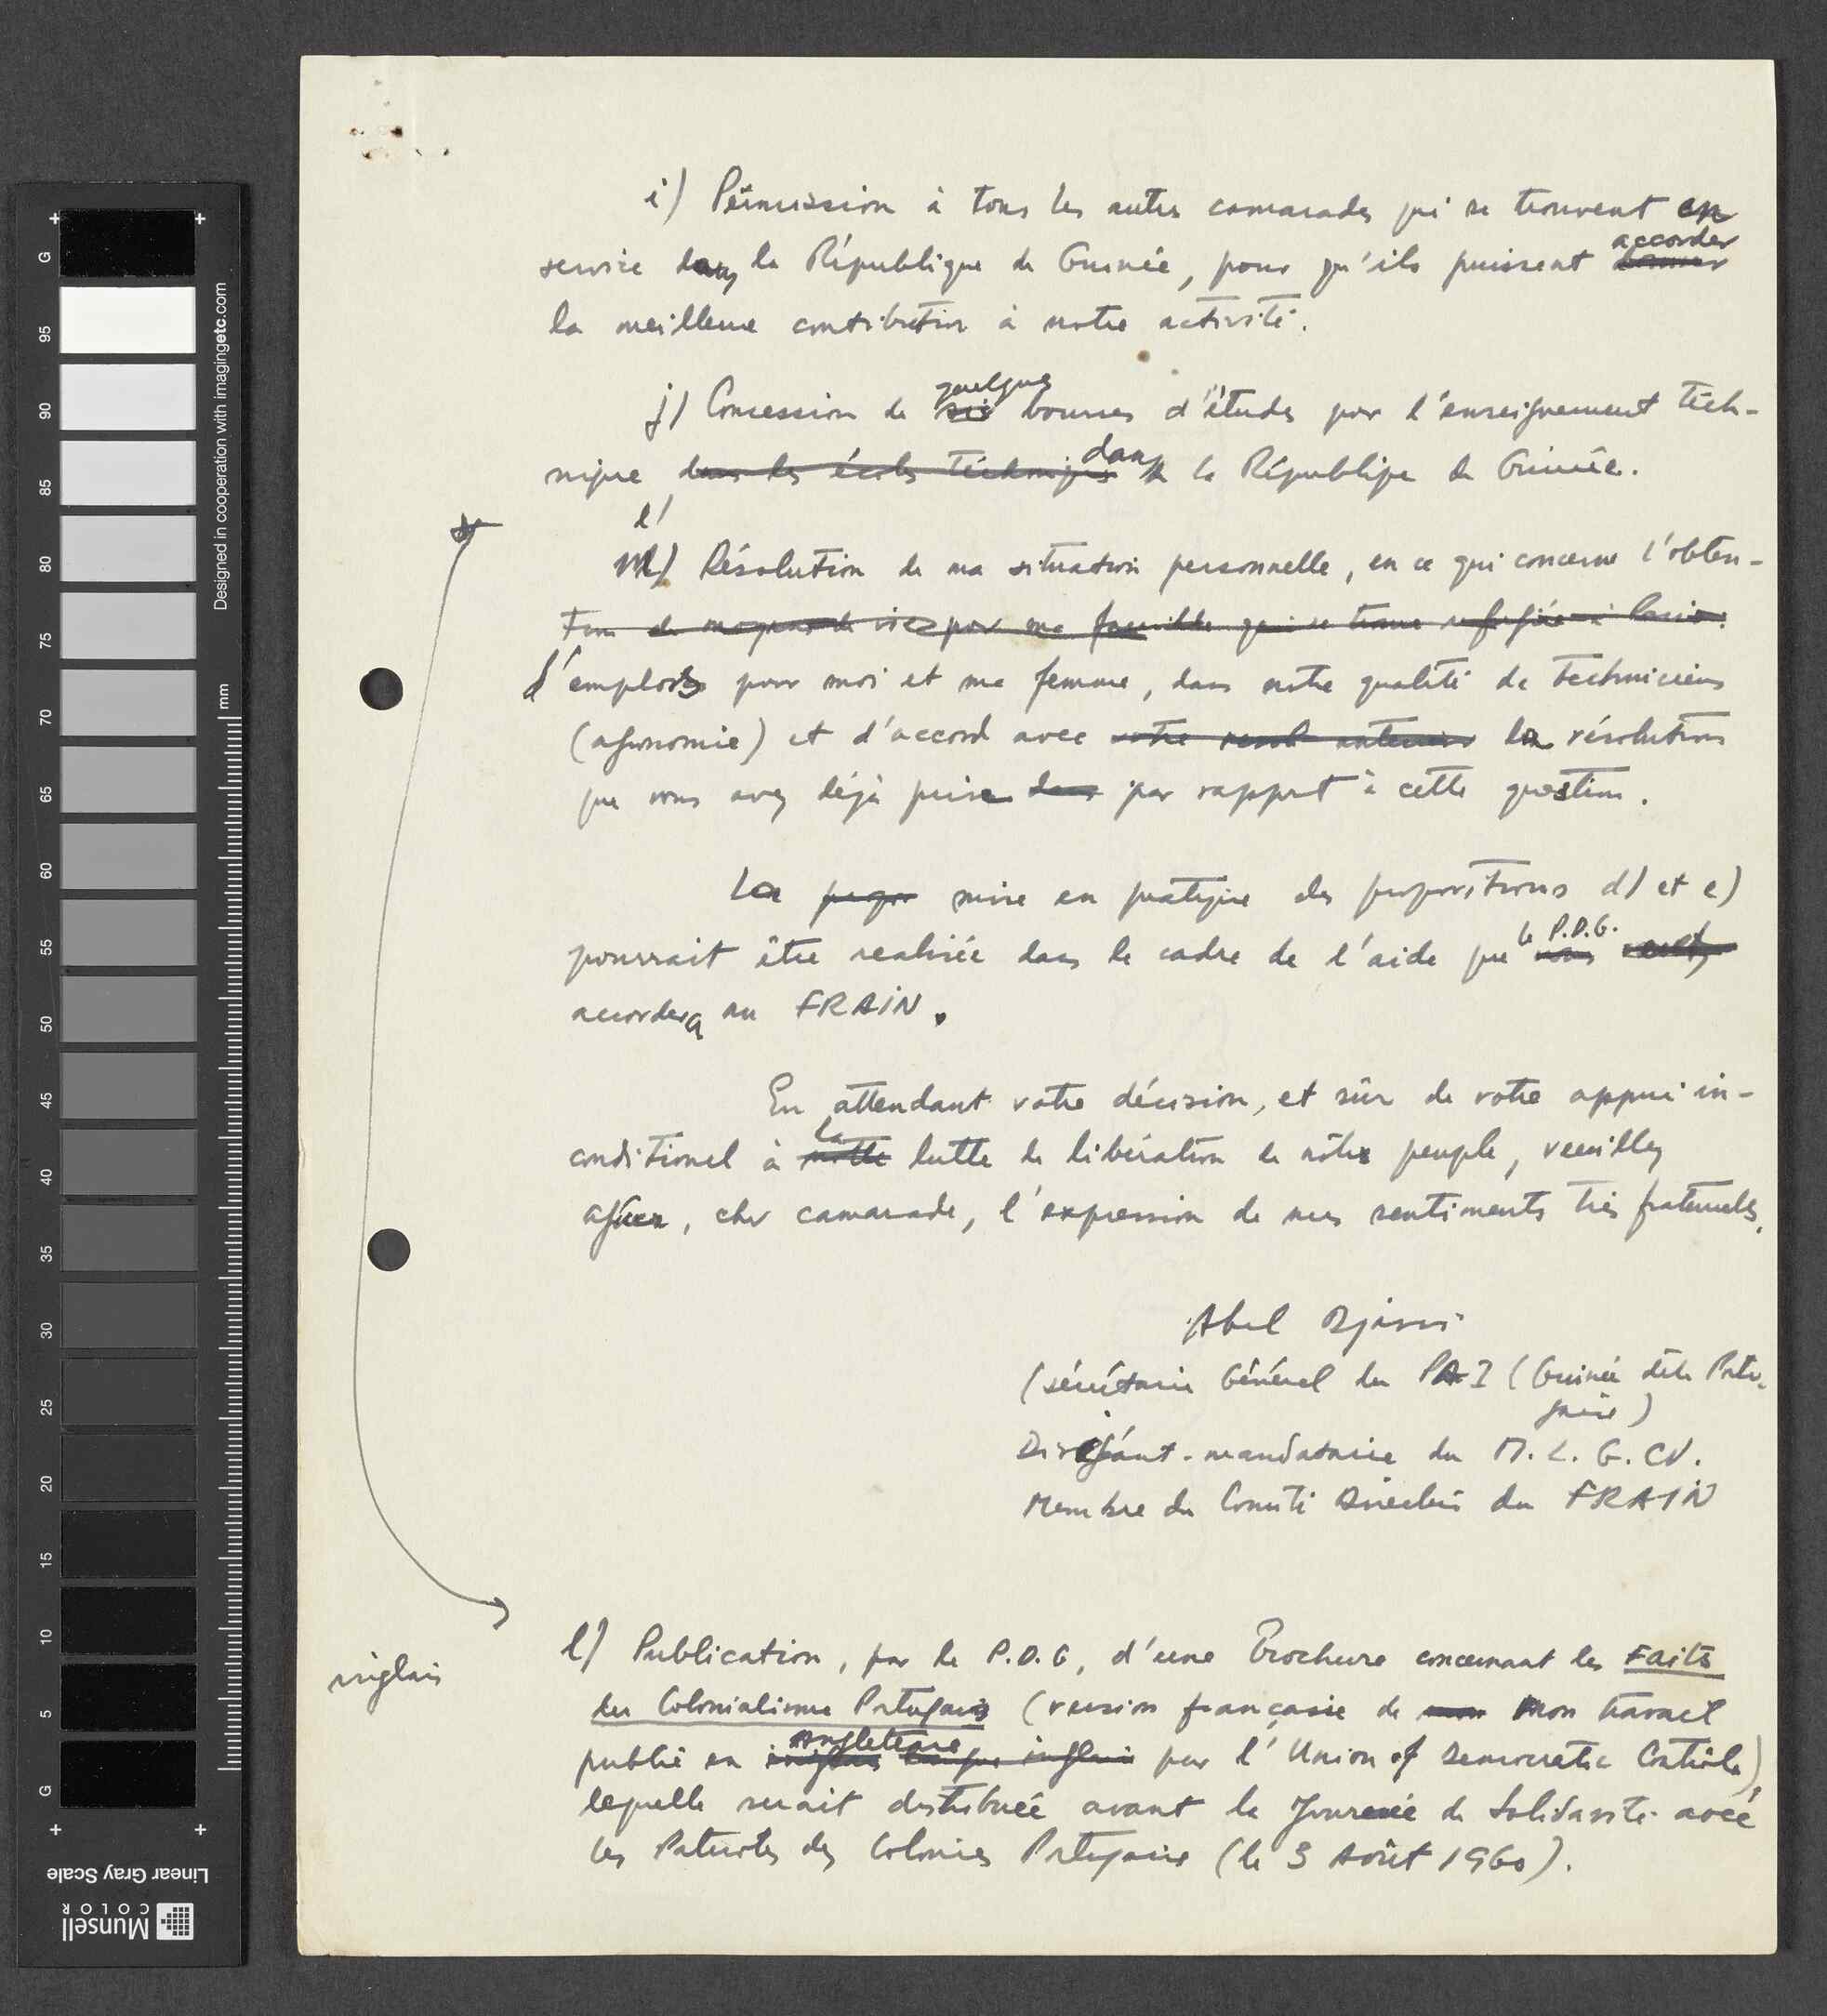 i) Permission à tous les autres camarades qui se trouvent en
service dans la République de Guinée, pour qu'ils puissent accorder
la meilleure contribution à notre activité.
j) Concession de quelques bourses d'études por l'enseignement téch-
nique dans les écoles téchniques dans la République de Guinée.
l)
m) Résolution de ma situation personnelle, en ce qui concerne l'obten-
tion de moyens de vie por ma famille qui se trouve refugiée à Paris.
d'emplois pour moi et ma femme, dans notre qualité de techniciens
(agronomie) et d'accord avec la résolution
que vous avez déjà prise dans par rapport à cette question.
La mise en pratique des propositions d) et e)
pourrait être realisée dans le cadre de l'aide que le P.D.G. vous
accordera au FRAIN.
En attendant votre décision, et sûr de votre appui in-
conditionel à la notre lutte de libération de nôtre peuple, veuillez
agréer, cher camarade, l'expression de mes sentiments très fraternels.
Abel Djassi
(sécrétaire Général du PAI (Guinée dite Portu-
gaise)
Dirigeánt-mandataire du M.L.G.CV.
Membre du Comité Directeur du FRAIN
l) Publication, par le P.D.G, d'une Brochure concernant les Faits
anglais
du Colonialisme Portugais (version française de mon travail
publié en Angleterre langue inglais par l'Union of Democratic Control),
lequelle serait distribuée avant la Journée de Solidarité avec
les Patriotes des Colonies Portugaise (le 3 Août 1960).
Designed in cooperation with imagingetc.com
mm
G 95 90 85 80 75 70 65 60 55 50 45 40 35 30 25 20 15 10 5 G
Linear Gray Scale
Munsell
COLOR